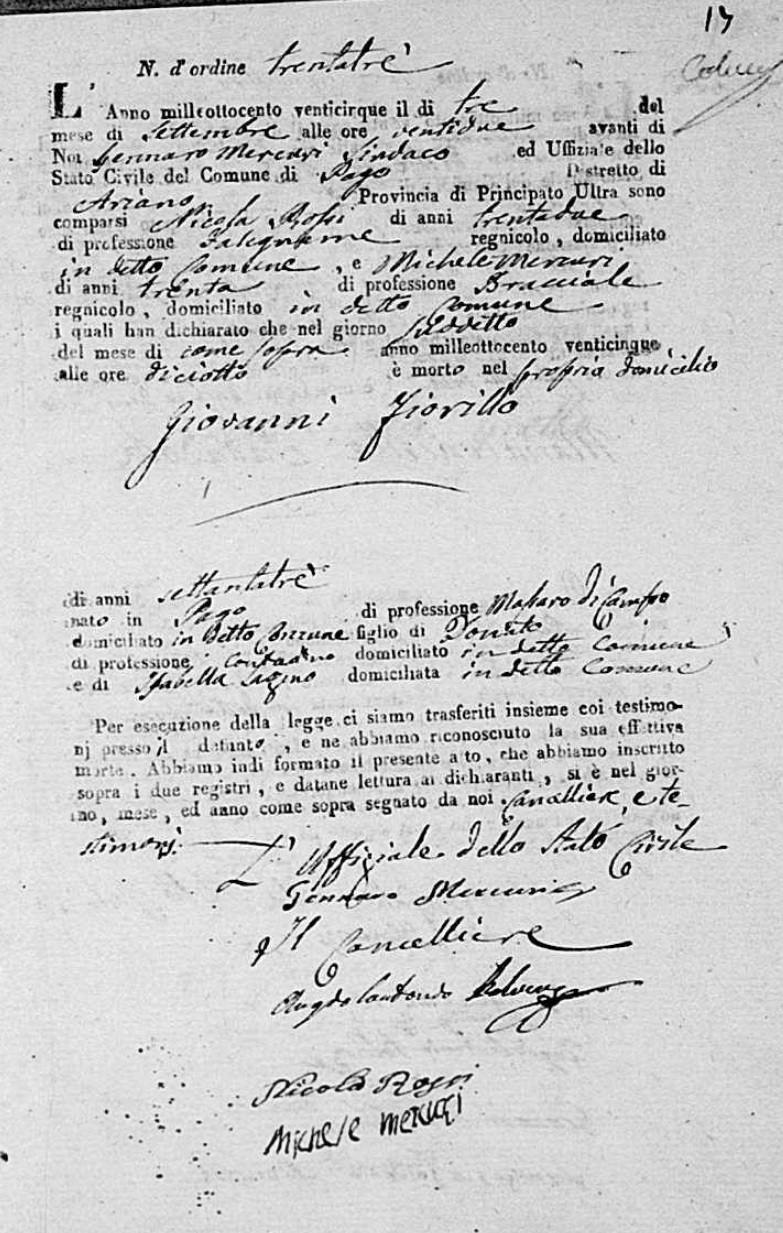 13
N. d'ordine trentatrè
L'Anno milleottocento venticinque il di tre del
mese di Settembre alle ore ventidue avanti di
Noi Gennaro Mercuri Sindaco ed Uffiziale dello
Stato Civile del Comune di Pago Distretto di
Ariano Provincia di Principato Ultra sono
comparsi Nicola Rossi di anni trentadue
di professione Falegname regnicolo, domiciliato
in detto Comune, e Michele Mercuri
di anni trenta di professione Bracciale
regnicolo, domiciliato in detto Comune
i quali han dichiarato che nel giorno suddetto
del mese di come sopra anno milleottocento venticinque
alle ore diciotto è morto nel proprio domicilio
Giovanni Fiorillo
di anni settantatrè
nato in Pago di professione Massaro di Campo
domiciliato in Detto Comune figlio di Donato
di professione contadino domiciliato in detto Comune
e di Isabella domiciliata in detto Comune
Per esecuzione della legge ci siamo trasferiti insieme coi testimo-
nj presso il defunto, e ne abbiamo riconosciuto la sua effettiva
morte. Abbiamo indi formato il presente atto, che abbiamo inscritto
sopra i due registri, e datane lettura ai dichiaranti, si è nel gior-
no, mese, ed anno come sopra segnato da noi Cancelliere, e te-
stimonj.
L'Ufficiale dello Stato Civile
Gennaro Mercuri
Il Cancelliere
Angelo Antonio
Nicola Rossi
Michele Mercuri